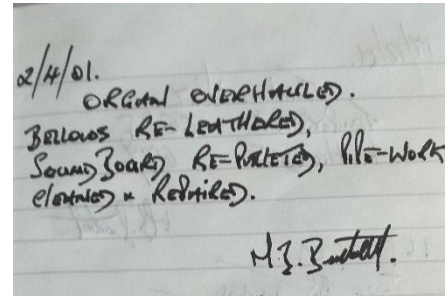 2/4/01.
ORGAN OVERHAULED.
BELLOWS RE-LEATHERED,
SOUND BOARD RE-PALLETED, PIPE-WORK
CLEANED & REPAIRED.